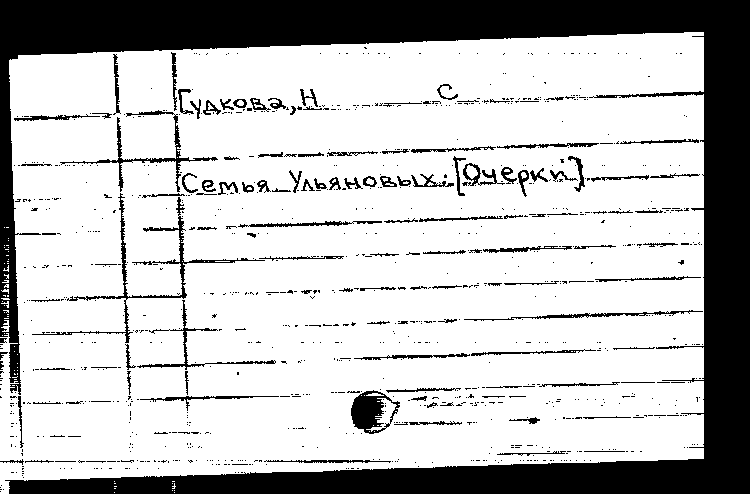 Гудкова, Н С
Семья Ульяновых: [Очерки]